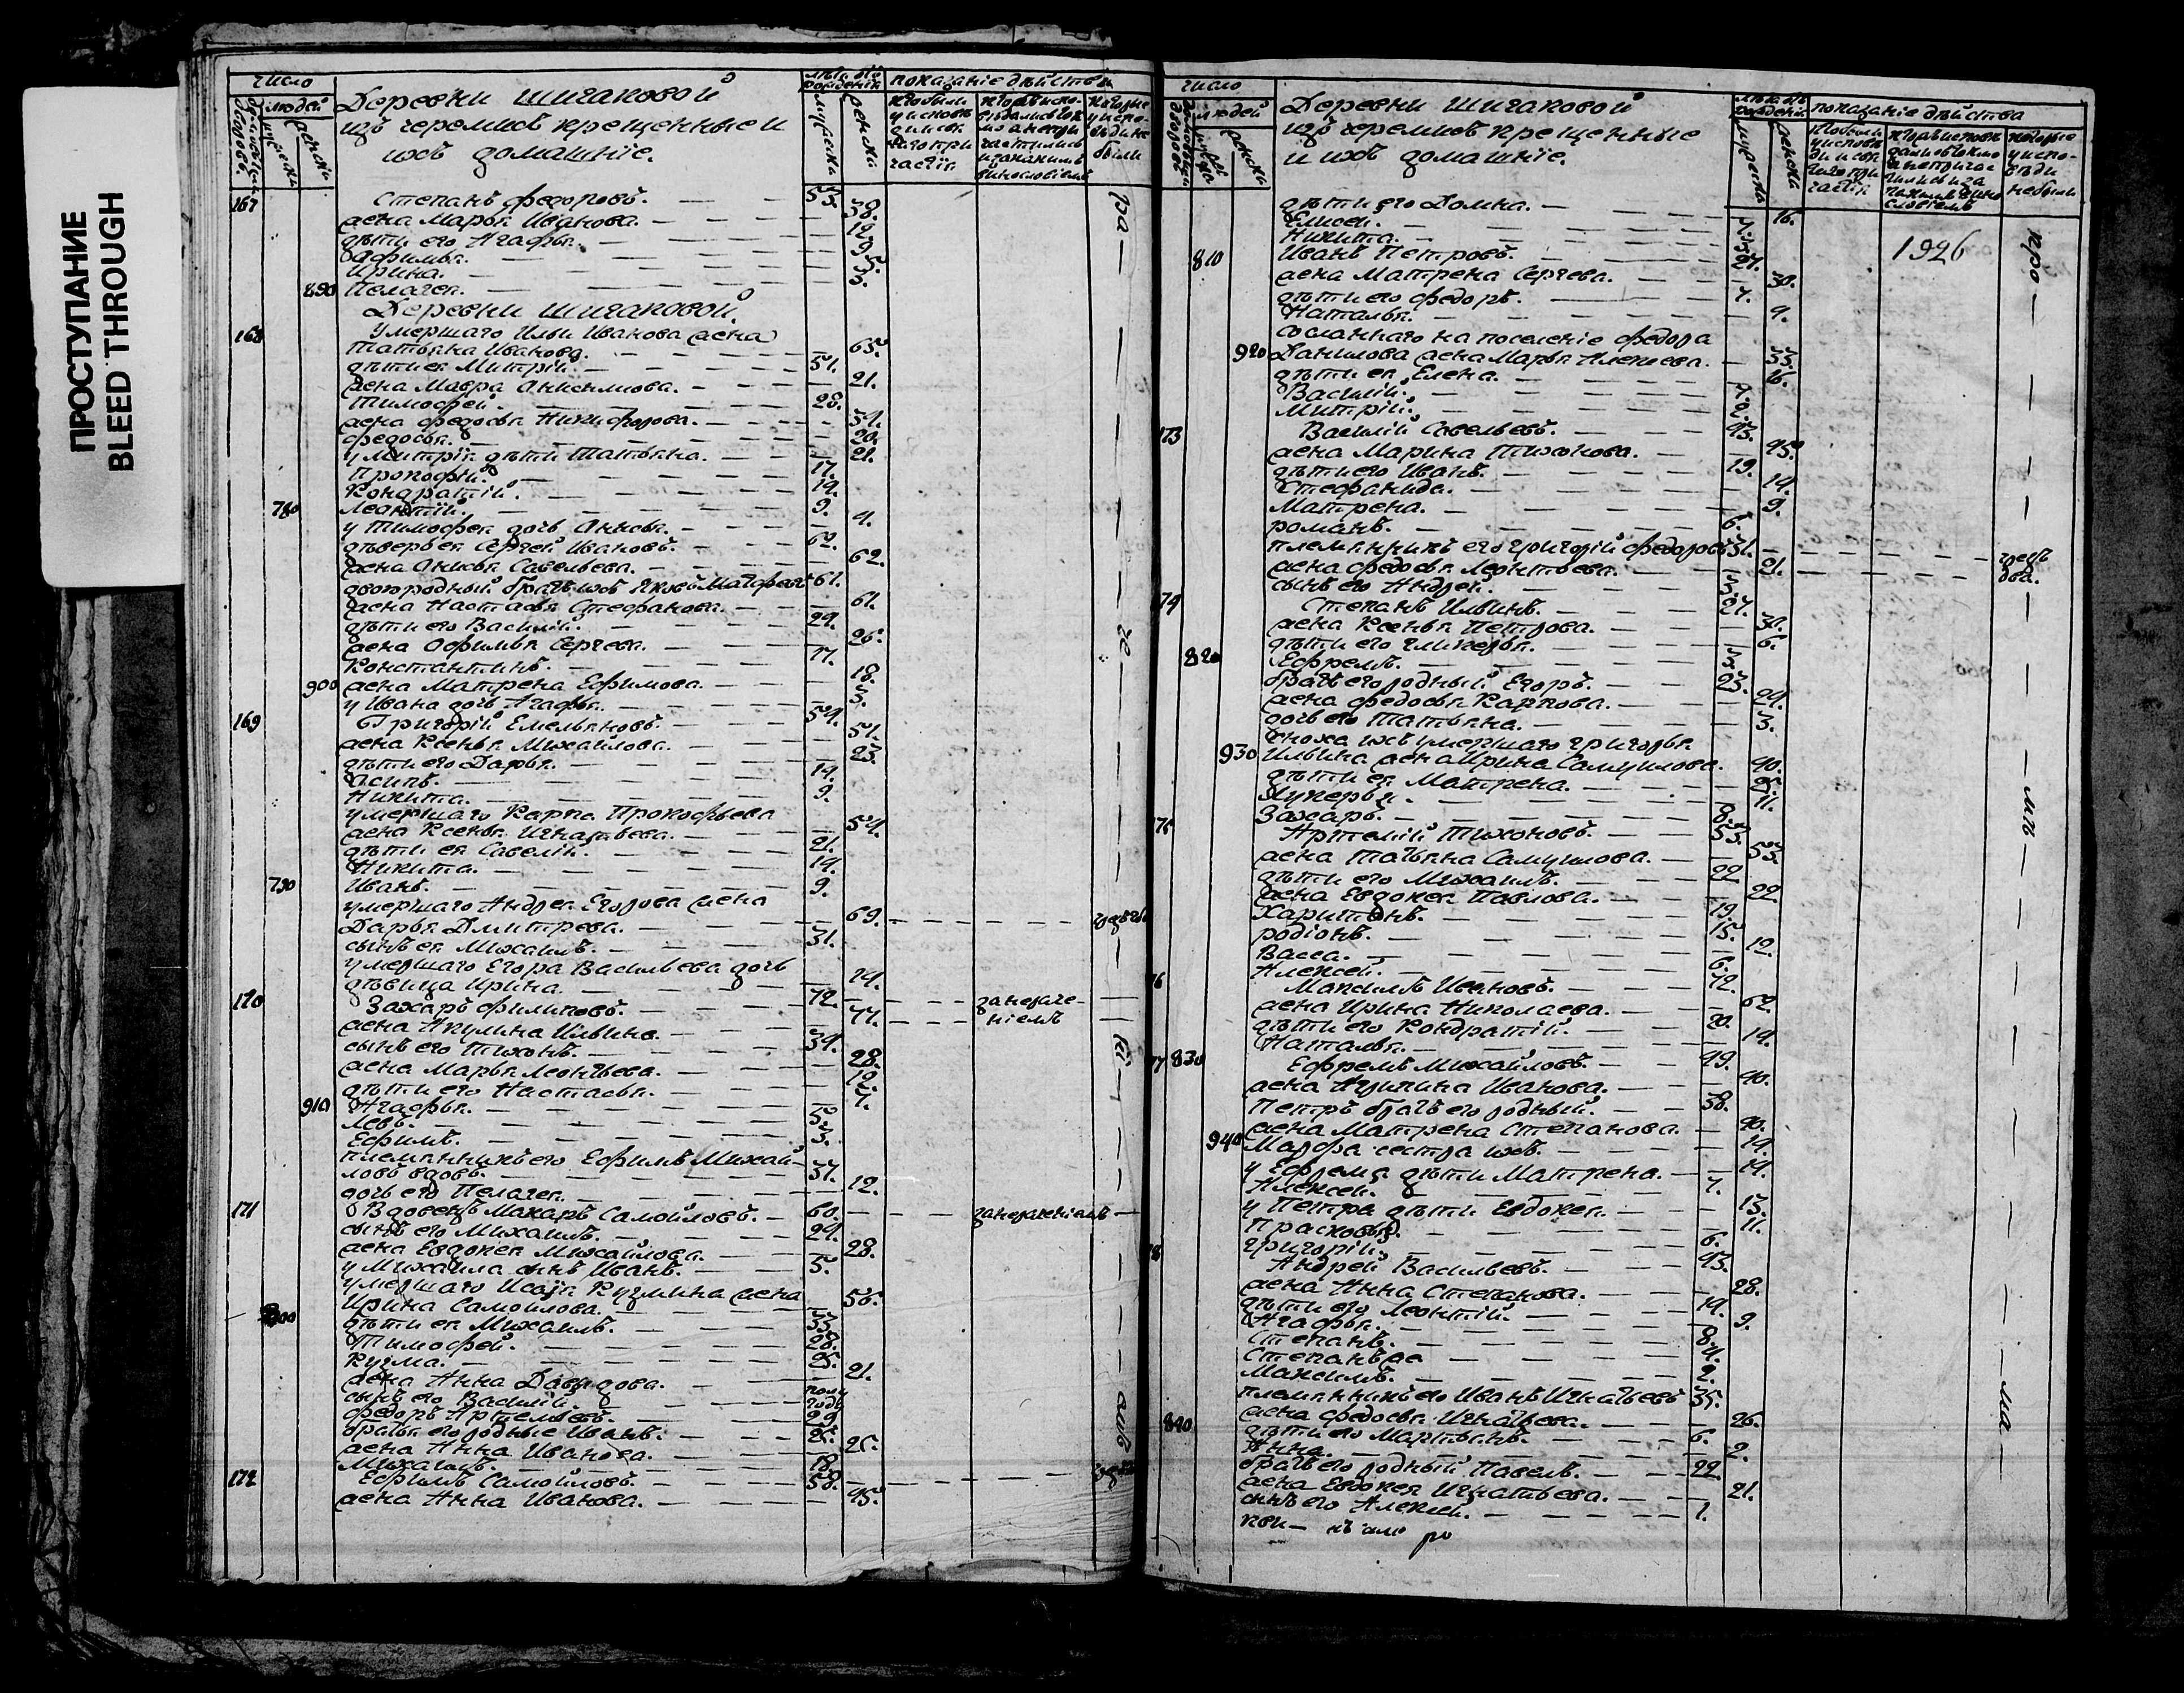 ПРОСТУПАНИЕ
BLEED THROUGH
число
людей
Деревни Шигаковой
изъ черемисъ крещенные и
ихъ домашніе.
показаніе дѣйства
167 Степанъ Федоровъ. 53.
жена Марья Иванова. 38.
дѣти его Агафья. 12.
Афимья. 9.
Ирина. 5.
890 Пелагея. 3.
Деревни Шигаковой.
168 умершаго Ильи Иванова жена
Татьяна Иванова. 65.
дѣти ея Митрій. 51.
жена Мавра Анисимова. 21.
Тимофей. 28.
жена Федосья Никифорова. 34.
Федосья. 20.
у Митрія дѣти Татьяна. 21.
Прокофій. 17.
Кондратій. 14.
780 Леонтій. 9.
у Тимофея дочь Анисья. 4.
дѣверь ея Сергей Ивановъ. 62.
жена Анисья Савельева. 62.
двоюродный братъ ихъ 61.
жена Настасья Стефанова. 61.
дѣти его Василій. 24.
жена Офимья Сергеева. 26.
Константинъ. 17.
900 жена Матрена Ефимова. 18.
у Ивана дочь Агафья. 3.
169 Григорій Емельяновъ. 54.
жена Ксенья Михайлова. 51.
дѣти его Дарья. 23.
Асипъ. 14.
Никита. 9.
умершаго Карпа Прокофьева
жена Ксенья Игнатьева. 54.
дѣти ея Савелій. 21.
Никита. 14.
790 Иванъ. 9.
умершаго Андрея Егорова жена
Дарья Дмитрева. 69.
сынъ ея Михаилъ. 31.
умершаго Егора Васильева дочь
дѣвица Ирина. 74.
170 Захаръ Филиповъ. 72. за нераче-
жена Акулина Ильина. 77. ніемъ
сынъ его Тихонъ. 34.
жена Марья Леонтьева. 28.
дѣти его Настасья. 12.
910 Агафья. 7.
Левъ. 5.
Ефимъ. 3.
племянникъ его Ефимъ Михай-
ловъ вдовъ. 37.
дочь его Пелагея. 12.
171 Вдовецъ Макаръ Самойловъ. 60. за нераченіемъ
сынъ его Михаилъ. 24.
жена Евдокея Михайлова. 28.
у Михаила сынъ Иванъ. 5.
умершаго Исаія Кузмина жена
Ирина Самойлова. 56.
800 дѣти ея Михаилъ. 33.
Тимофей. 28.
Кузма. 25.
жена Анна Давыдова. 21.
сынъ его Василій. полу года
Федоръ Артемьевъ. 29
братья его родные Иванъ. 25.
жена Анна Иванова. 25.
Михаилъ. 18.
172 Ефимъ Самойловъ. 58.
жена Анна Иванова. 45.
число
людей
Деревни Шигаковой
изъ черемисъ крещенные
и ихъ домашніе.
показаніе дѣйства
дѣти его Домна. 16.
Елисей. 7.
Никита.
810 Иванъ Петровъ. 27.
жена Матрена Сергеева. 30.
дѣти его Федоръ. 7.
Наталья. 4.
1926
сосланнаго на поселеніе Федора
920 Данилова жена Марья Алексеева. 33.
дѣти ея Елена. 16.
Василій. 7.
Митрій. 2.
173 Василій Савельевъ. 43.
жена Марина Тихонова. 45.
дѣти его Иванъ. 19.
Стефанида. 14.
Матрена. 9.
Романъ. 6.
племянникъ его Григорій Федоровъ 31.
жена Федосья Леонтьева. 21.
сынъ его Андрей. 3.
174 Степанъ Ильинъ. 27.
жена Ксенья Петрова. 30.
дѣти его Гликерья. 6.
820 Ефремъ. 3.
братъ его родный Егоръ. 23.
жена Федосья Карпова. 24.
дочь его Татьяна. 3.
сноха ихъ умершаго Григорья
930 Ильина жена Ирина Самуилова. 40.
дѣти ея Матрена.
Лукерья. 11.
Захаръ. 8.
175 Артемій Тихоновъ. 53.
жена Татьяна Самуилова. 53.
дѣти его Михаилъ. 22
жена Евдокея Павлова. 22.
Харитонъ. 19.
Родіонъ. 15.
Васса. 12.
Алексей. 6.
76 Максимъ Ивановъ. 72.
жена Ирина Николаева. 62.
дѣти его Кондратій. 20.
Наталья. 14.
77 830 Ефремъ Михайловъ. 49.
жена Акулина Иванова. 40.
Петръ братъ его родный. 38.
жена Матрена Степанова. 40.
940 Марфа сестра ихъ. 19.
у Ефрема дѣти Матрена. 14.
Алексей. 7.
у Петра дѣти Евдокея. 13.
Прасковья. 11.
Григорій. 6.
78 Андрей Васильевъ. 43.
жена Анна Степанова. 28.
дѣти его Леонтій. 14.
Агафья. 9.
Степанъ. 8.
Степанъ же 4.
Максимъ. 2.
племянникъ его Иванъ Игнатьевъ 35.
жена Федосья Игнатьева. 26.
840 дѣти его Мартынъ. 6.
Анна. 2.
братъ его родный Павелъ. 22
жена Евдокея Игнатьева. 21.
сынъ его Алексей. 1.